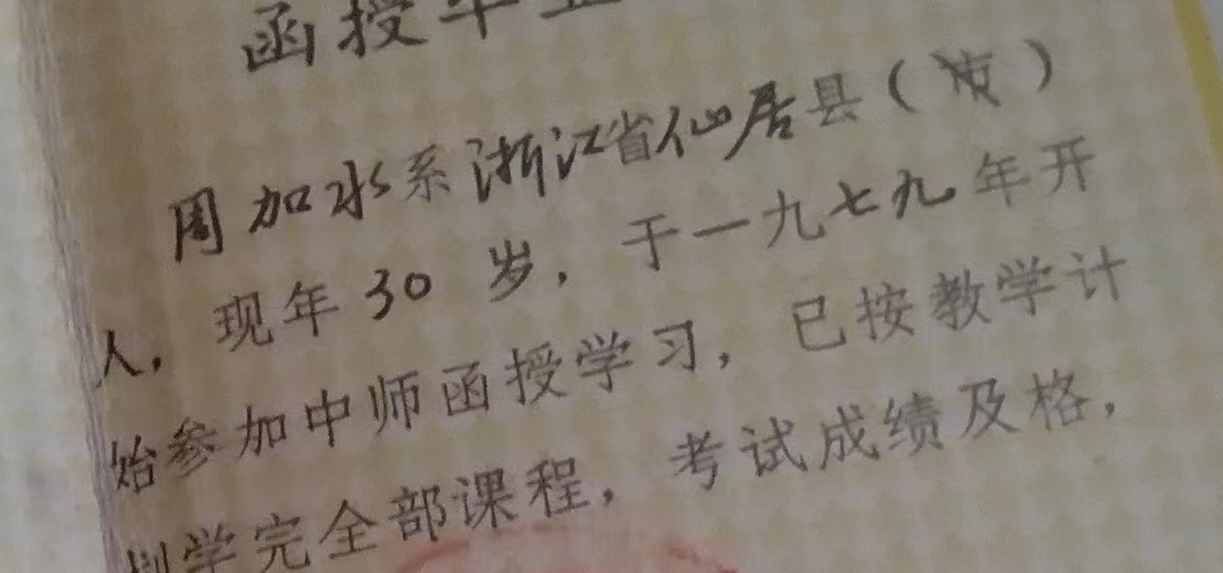 函授毕业
周加水系浙江省仙居县（市）
人，现年30岁，于一九七九年开
始参加中师函授学习，已按教学计
划学完全部课程，考试成绩及格，